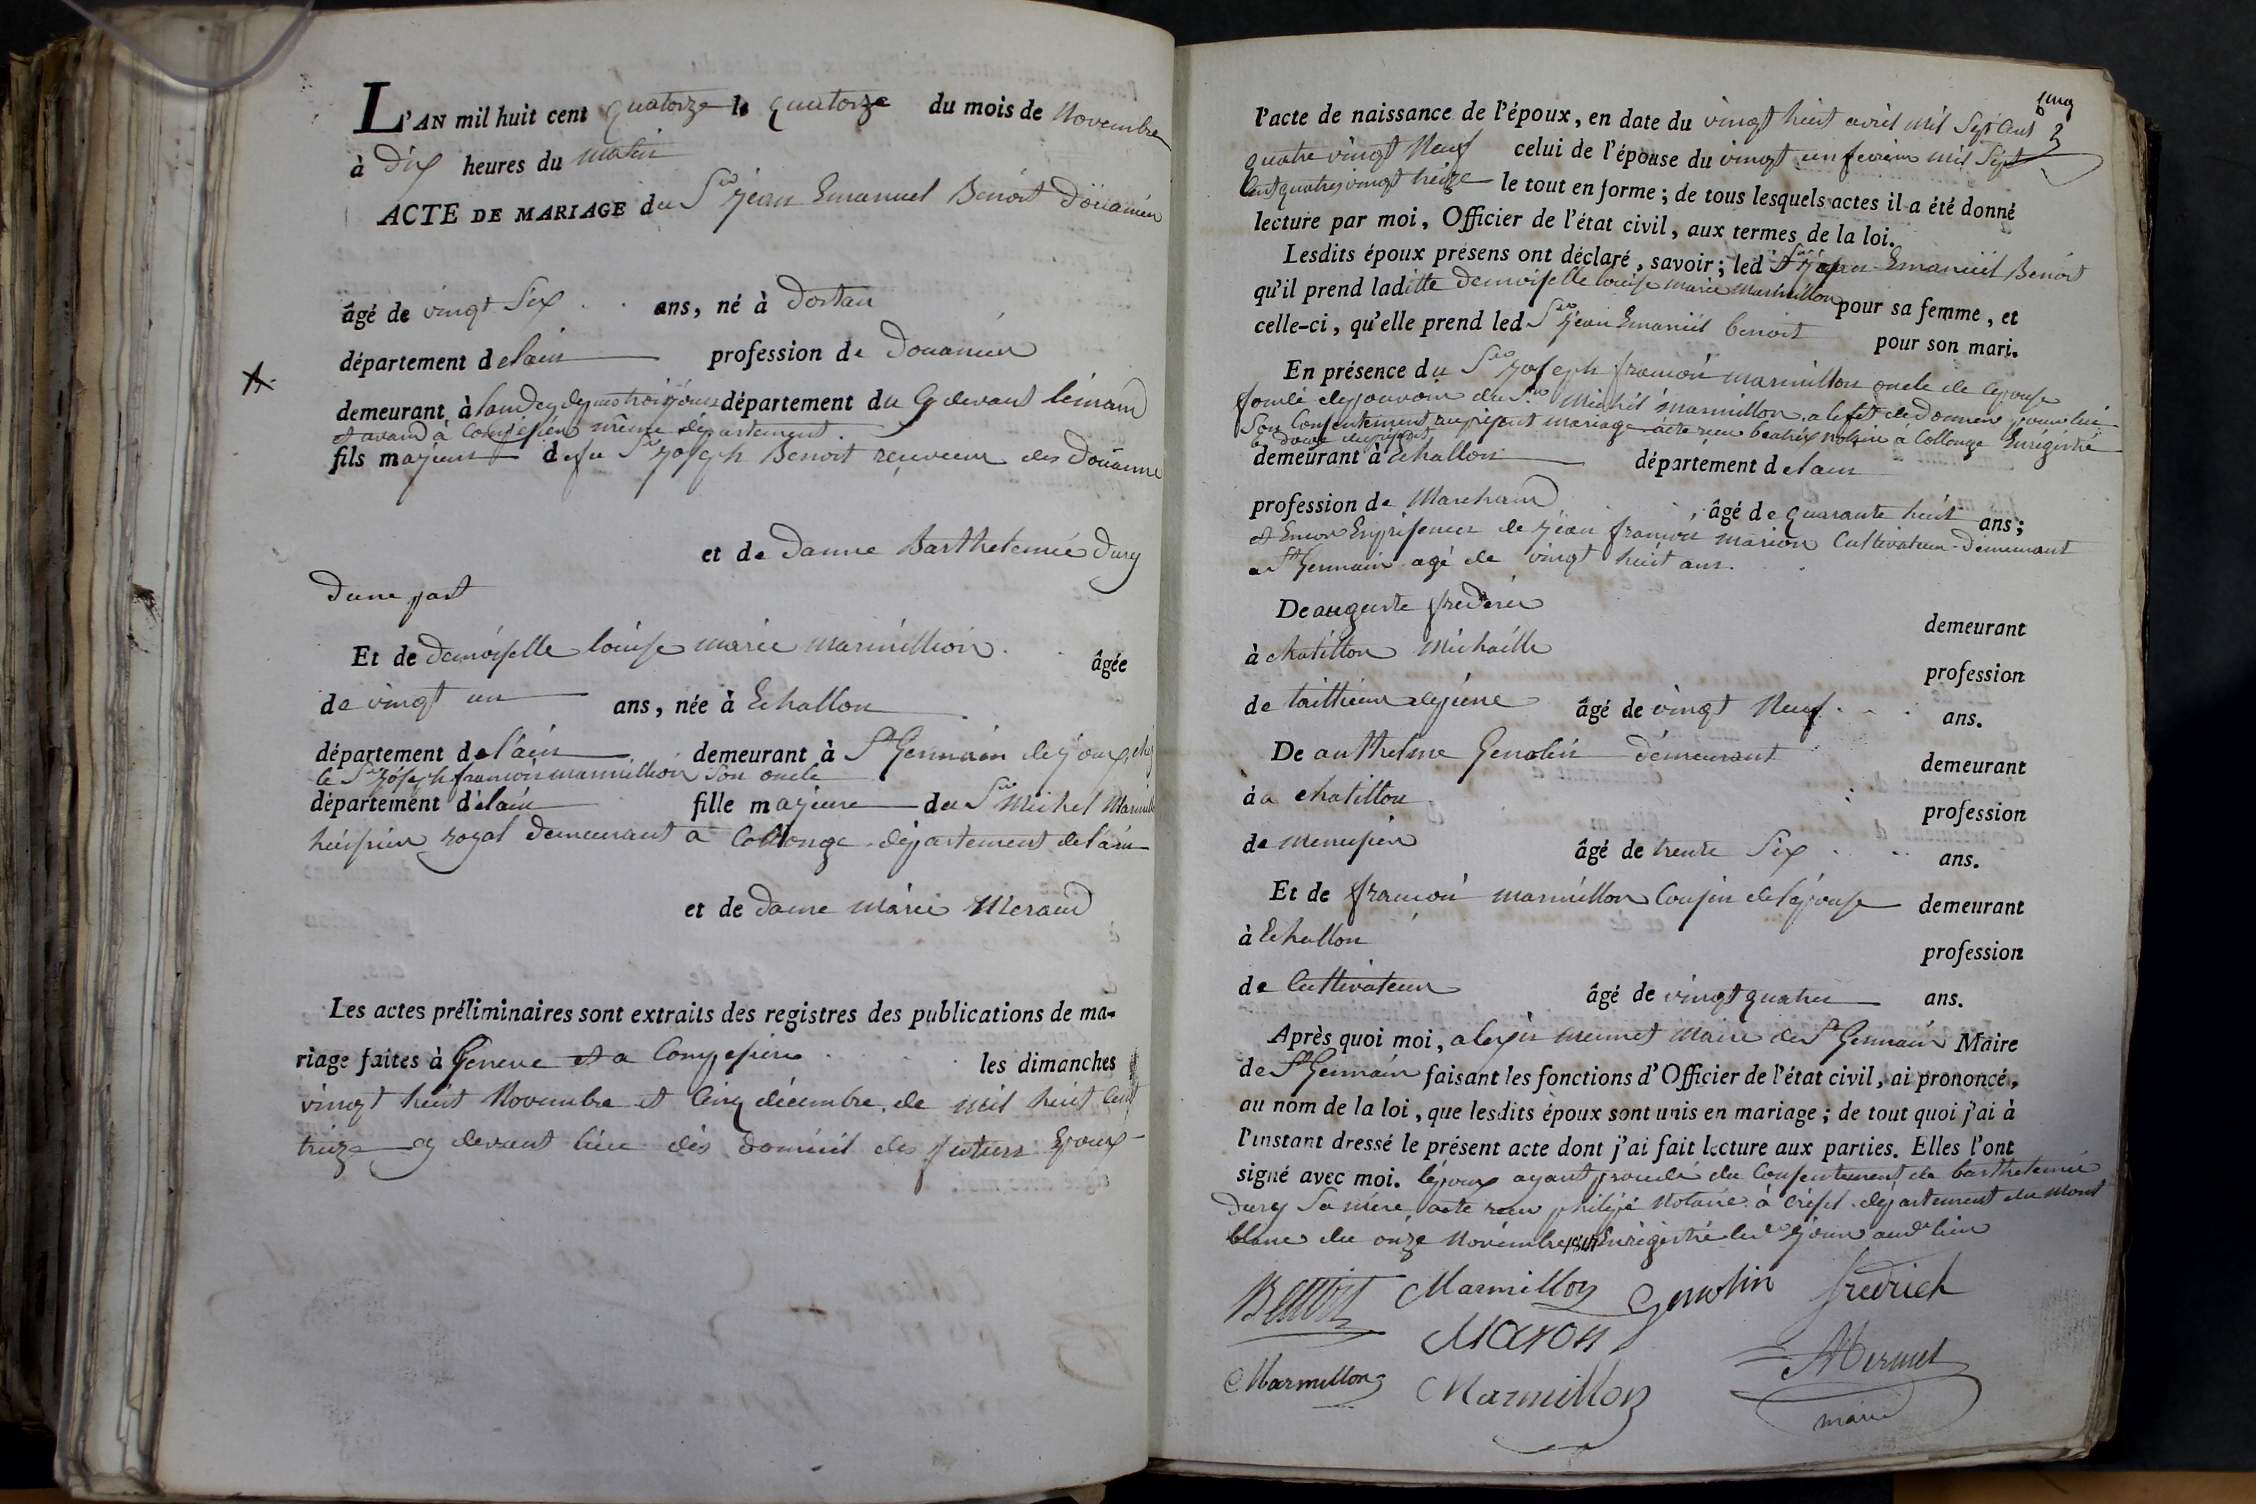 L'AN mil huit cent quatorze le quatorze du mois de Novembre
à Dix heures du matin
ACTE DE MARIAGE du Sr jean Emanuel Benoit Doüanier
âgé de vingt Six ans, né à Dortan
département de lain profession de Douanier
demeurant à depuis trois jours département du Cy devant léman
et avant à même département.
fils majeur de fu Sr joseph Benoit reçeveur des Doüanne
et de Damme Barthelemie Dury
Dune part
Et de Demoiselle loüise marie marmillion âgée
de vingt un ans, née à Echallon
département de l'ain demeurant à St Germain de joux, chez
le Sr joseph françois marmillion Son oncle
département de lain fille majeure du Sr Michel
huissier royal demeurant à Collonge département de lain
et de Dame Marie Meraud
Les actes préliminaires sont extraits des registres des publications de ma-
riage faites à Geneve et a Compesiere les dimanches
vingt huit Novembre et Cinq décembre de mil huit Cent
treize cy devant lieu dès domicil des futurs Epoux
Cinq
l'acte de naissance de l'époux, en date du vingt huit avril mil Sept Cent
quatre vingt Neuf celui de l'épouse du vingt un fevrier mil Sept
Cent quatre vingt treize le tout en forme; de tous lesquels actes il a été donné
lecture par moi, Officier de l'état civil, aux termes de la loi.
Lesdits époux présens ont déclaré, savoir; led Sr jean Emanuel Benoit
qu'il prend laditte Demoiselle louise marie marmillon pour sa femme, et
celle-ci, qu'elle prend led Sr jean Emanuel benoit pour son mari.
En présence du Sr joseph françois marmillon oncle de lepouse
fondé de pouvoir du Sr Michel marmillon a leffet de donner pour lui
Son Consentement au présent mariage acte reçu beatrix notaire à Collonge Enrégistré
demeurant à Echallon département de lain
profession de Marchand âgé de quarante huit ans;
et Encor En présence de jean françois marion Cultivateur Demeurant
a St Germain agé de vingt huit ans.
De auguste frederic demeurant
à chatillon Michaille profession
de taillieur de pierre âgé de vingt Neuf ans.
De anthelme Genolin demeurant demeurant
à a chatillon profession
de menusier âgé de trente Six ans.
Et de françois marmillon Cousin de lépouse demeurant
à Echallon profession
de Cultivateur âgé de vingt quatre ans.
Après quoi moi, alexis mermet Maire de St Germain Maire
de St Germain faisant les fonctions d'Officier de l'état civil, ai prononcé,
au nom de la loi, que lesdits époux sont unis en mariage; de tout quoi j'ai à
l'instant dressé le présent acte dont j'ai fait lecture aux parties. Elles l'ont
signé avec moi. lépoux ayant du Consentement de barthelemie
Dury Sa mére, acte reçu notaire à département du Mont
blanc du onze Novembre 1814 Enrégistré le jour aud lieu
Benoit Marmillon Genolin fredrich
Marion
Marmillon Marmillon AMermet
maire